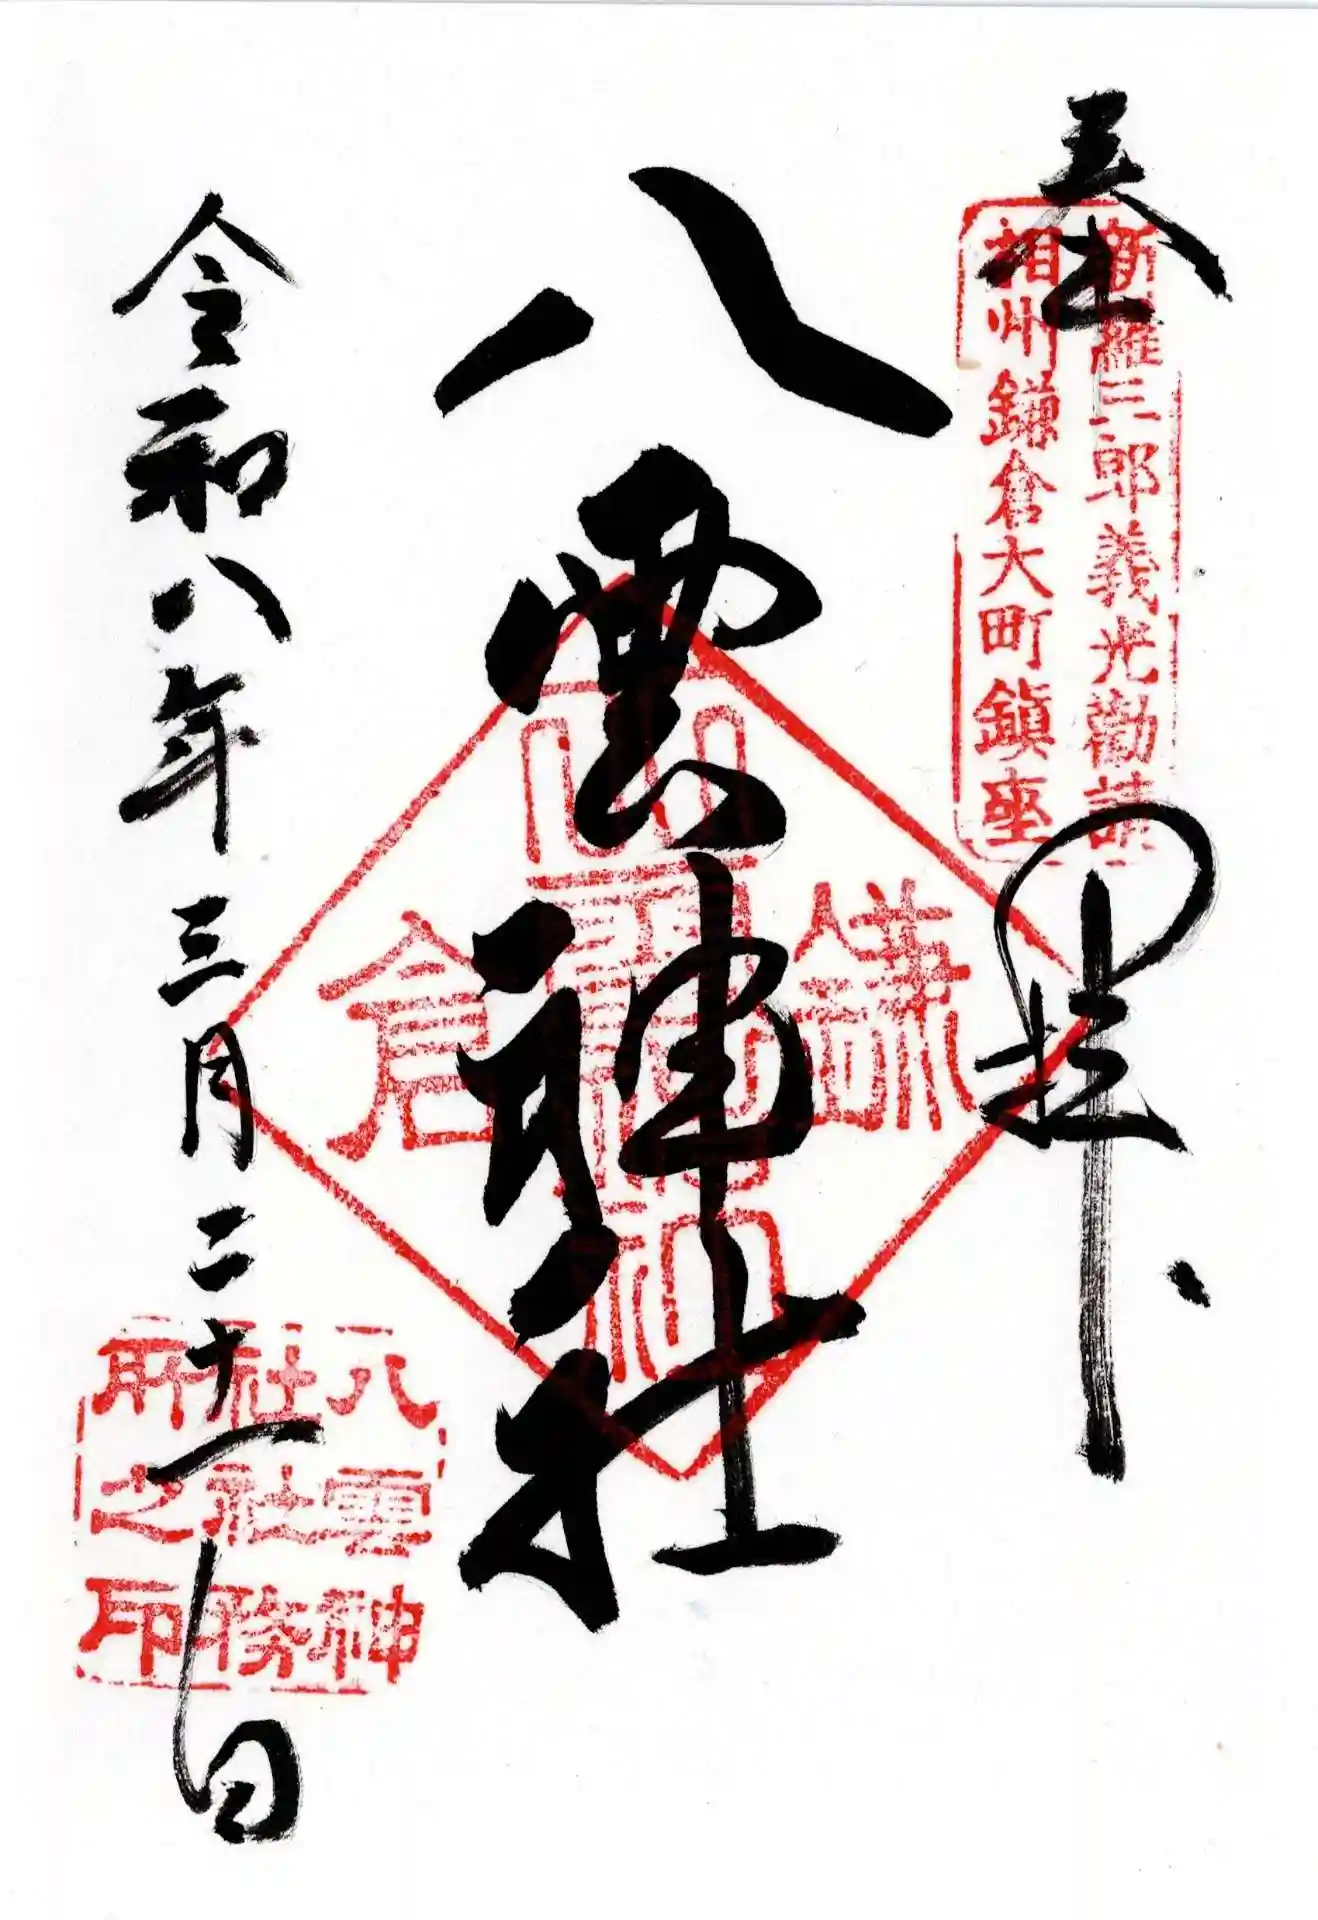 奉拝
新羅三郎義光勸請
相州鎌倉大町鎭座
八雲神社
鎌倉
令和八年三月二十一日
八雲神
社社務
所之印